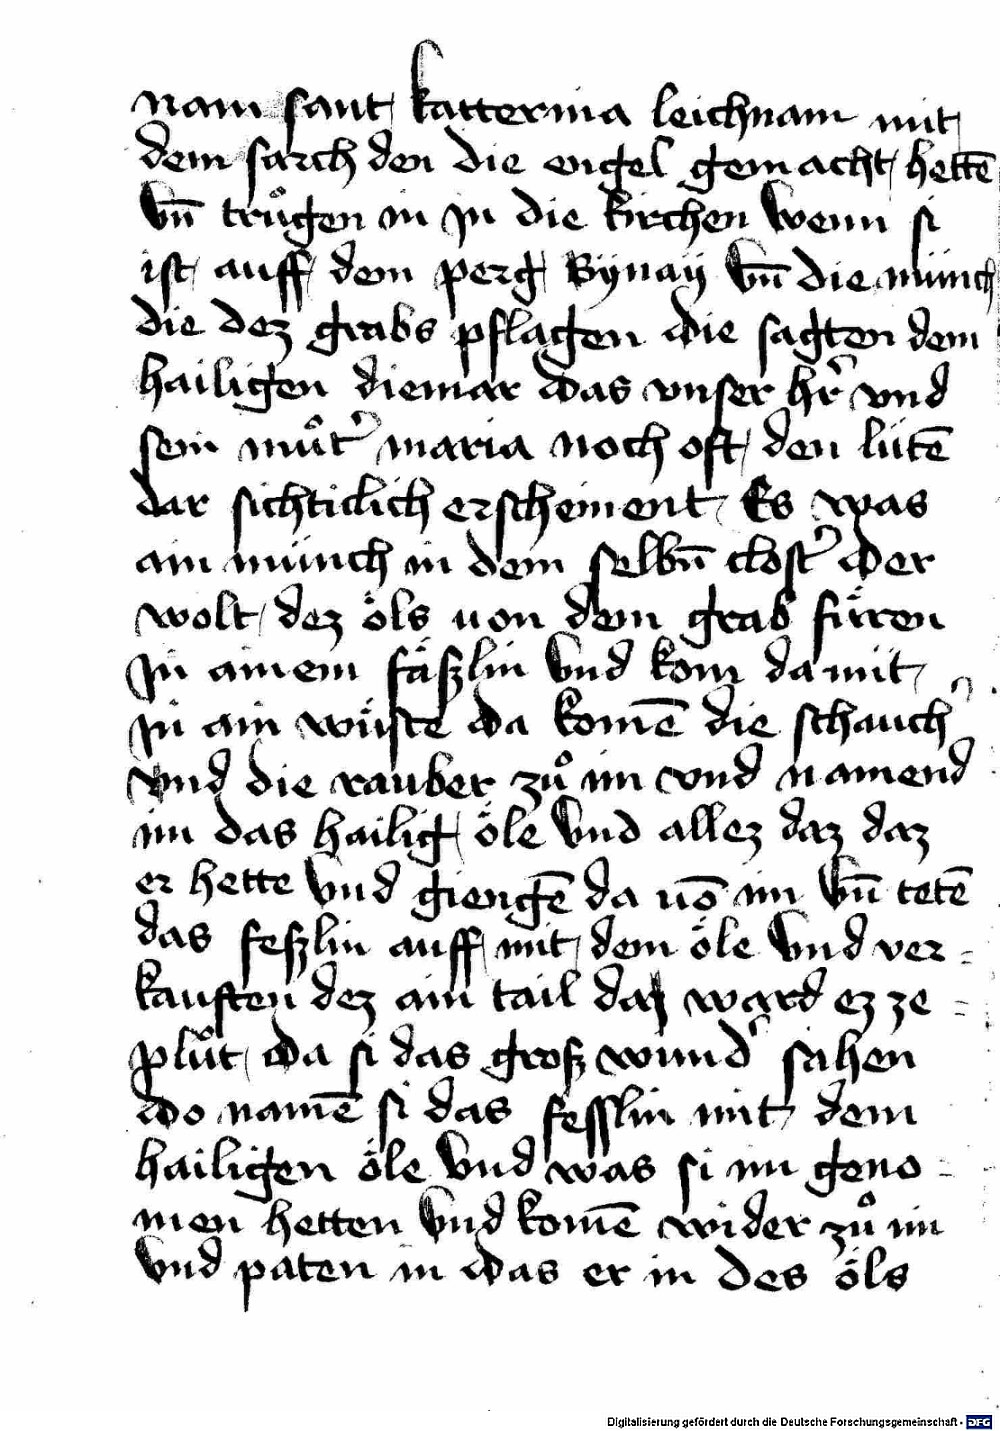 nam sant katterina leichnam mit
dem sarch den die engel gemacht hettē
vn̄ truͦgen in jn die kirchen wenn si
ist auff dem perg Synay vn̄ die münch
die dez grabs pflagen die sagten dem
hailigen diemar das vnser hr̄ vnd
sein muͦt' maria noch oft den lütē
dar sichticlich erscheinent Es was
ain münch in dem selbn̄ clost' der
wolt dez öls von dem grab füren
Jn ainem fäßlin vnd kom da mit
jn ain wüste da komē die schauch'
vnd die rauber zuͦ im vnd namend
im das hailig öle vnd allez daz daz
er hette vnd giengē da vō im vn̄ tetē
das feßlin auff mit dem öle vnd ver=
kauften dez ain tail daz ward ez ze=
pluͦt da si das groß wund' sahen
do namē si das fesslin mit dem
hailigen öle vnd was si im geno=
men hetten vnd komē wider zuͦ im
vnd paten in das er in des öls
Digitalisierung gefördert durch die Deutsche Forschungsgemeinschaft - DFG